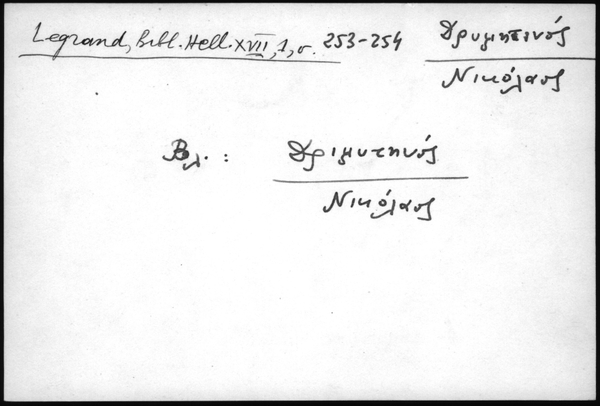 Legrand, Bibl. Hell. XVII, 1, σ. 253-254
Δρυμητινός
Νικόλαος
Βλ. :
Δριμυτηνός
Νικόλαος